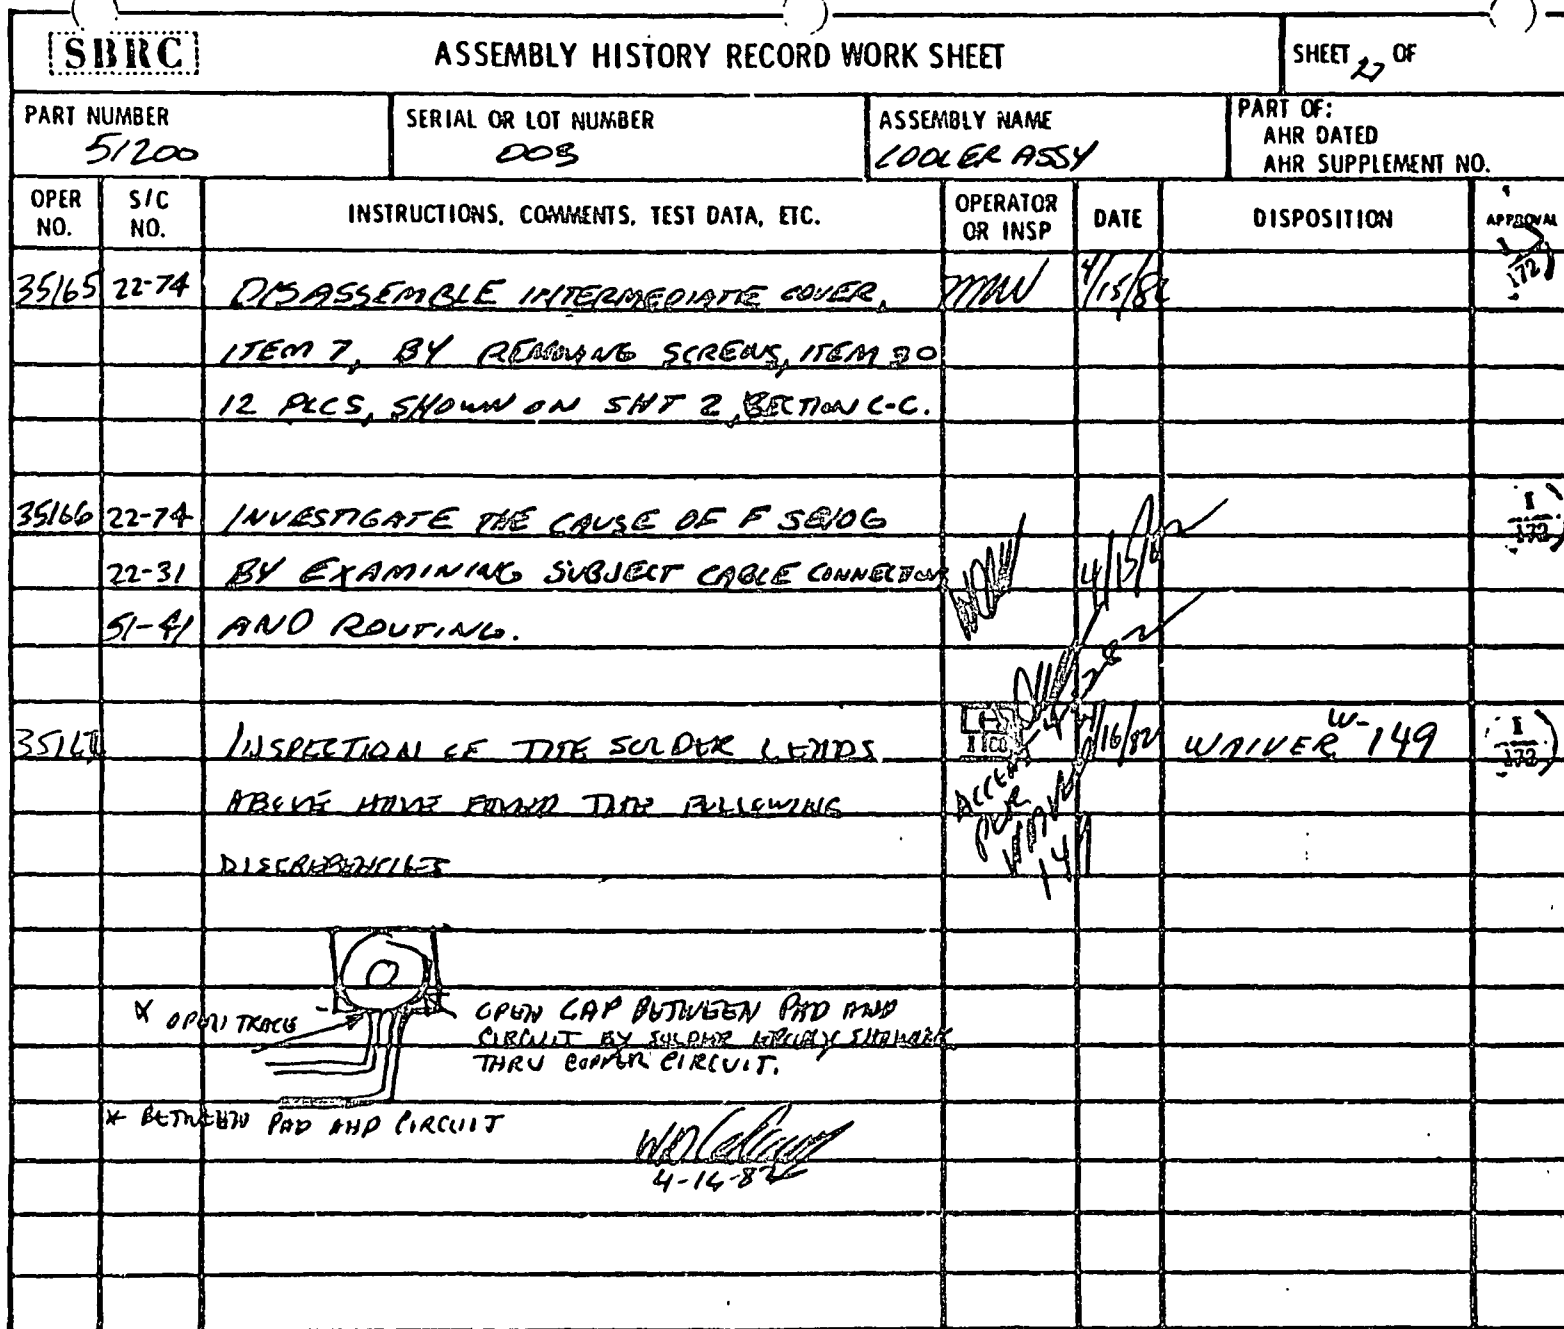 SBRC
ASSEMBLY HISTORY RECORD WORK SHEET
SHEET 27 OF
PART NUMBER
51200
SERIAL OR LOT NUMBER
003
ASSEMBLY NAME
COOLER ASSY
PART OF:
AHR DATED
AHR SUPPLEMENT NO.
OPER NO.
S/C NO.
INSTRUCTIONS, COMMENTS, TEST DATA, ETC.
OPERATOR OR INSP
DATE
DISPOSITION
APPROVAL
35165 22-74 DISASSEMBLE INTERMEDIATE COVER, 4/15/82 I 172
ITEM 7, BY REMOVING SCREWS, ITEM 30
12 PLCS, SHOWN ON SHT 2, SECTION C-C.
35166 22-74 INVESTIGATE THE CAUSE OF F I 172
22-31 BY EXAMINING SUBJECT CABLE CONNECTION 4/15/82
51-41 AND ROUTING.
35167 INSPECTION OF THE SOLDER LEADS 4/16/82 WAIVER W-149 I 172
ABOVE HAVE FOUND THE FOLLOWING ACCEPT PER WAIVER 149
DISCREPENCIES
* OPEN TRACE
OPEN GAP BETWEEN PAD AND
CIRCUIT BY
THRU COPPER CIRCUIT.
* BETWEEN PAD AND CIRCUIT
4-16-82